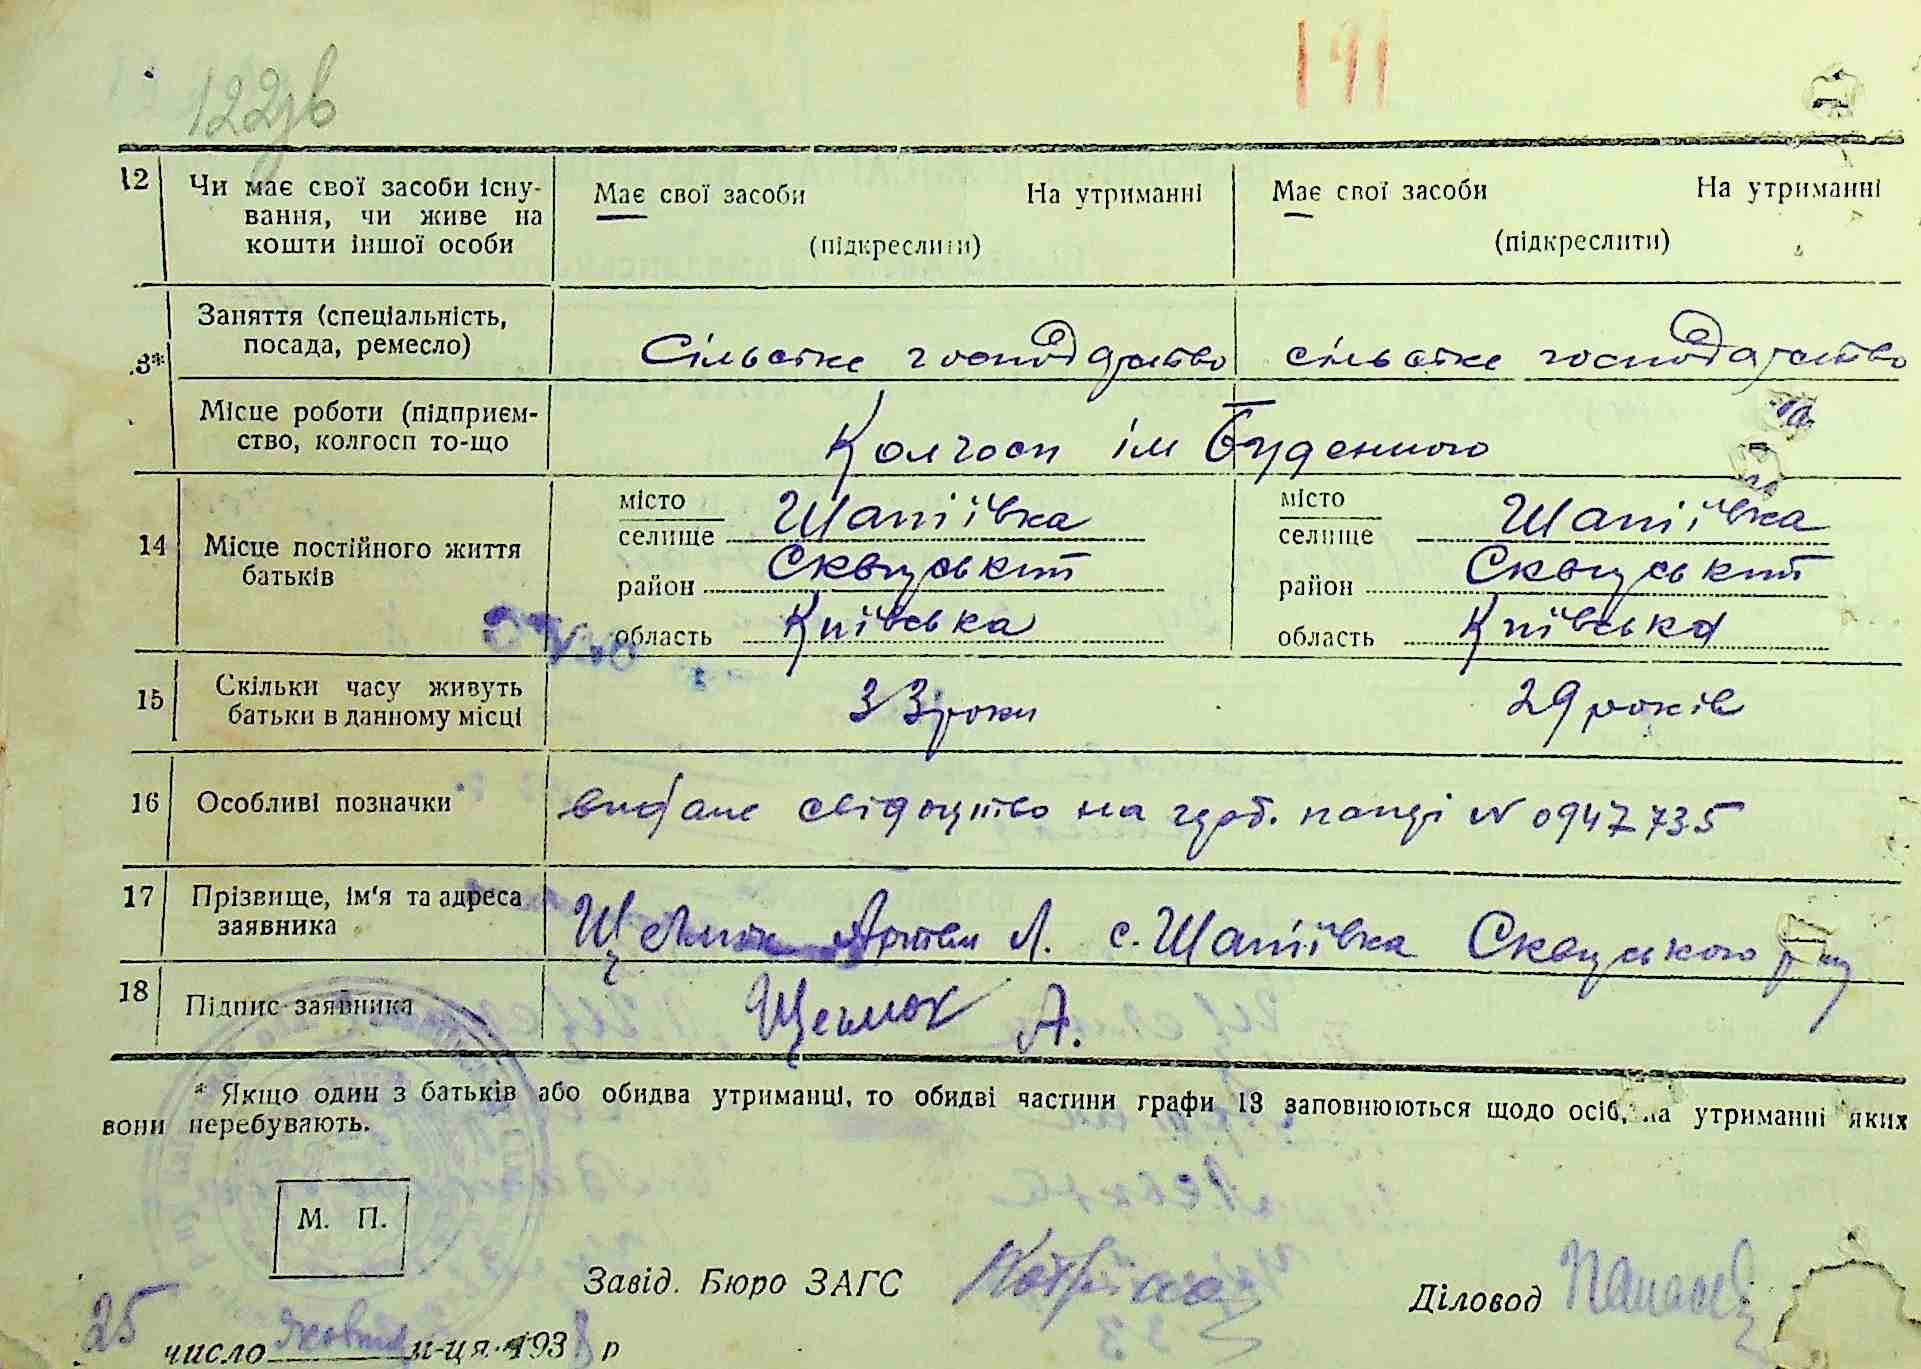 191
122
12 Чи має свої засоби існу-
вання, чи живе на
кошти іншої особи
Має свої засоби На утриманні
(підкреслити)
Має свої засоби На утриманні
(підкреслити)
3* Заняття (спеціальність,
посада, ремесло)
Сільске господарство
сільске господарство
Місце роботи (підприєм-
ство, колгосп то-що
Колгосп ім Буденного
14 Місце постійного життя
батьків
місто
селище Шапіївка
район Сквиський
область Київська
місто
селище Шапіївка
район Сквиський
область Київська
15 Скільки часу живуть
батьки в данному місці
33 роки
29 років
16 Особливі позначки
видане свідоцтво на герб. папері № 0947735
17 Прізвище, ім'я та адреса
заявника
Артем Л. с. Шапіївка Сквиського
18 Підпис заявника
А.
* Якщо один з батьків або обидва утриманці, то обидві частини графи 13 заповнюються щодо осіб, на утриманні яких
вони перебувають.
М. П.
Завід. Бюро ЗАГС
Діловод
25 число м-ця 1938 р